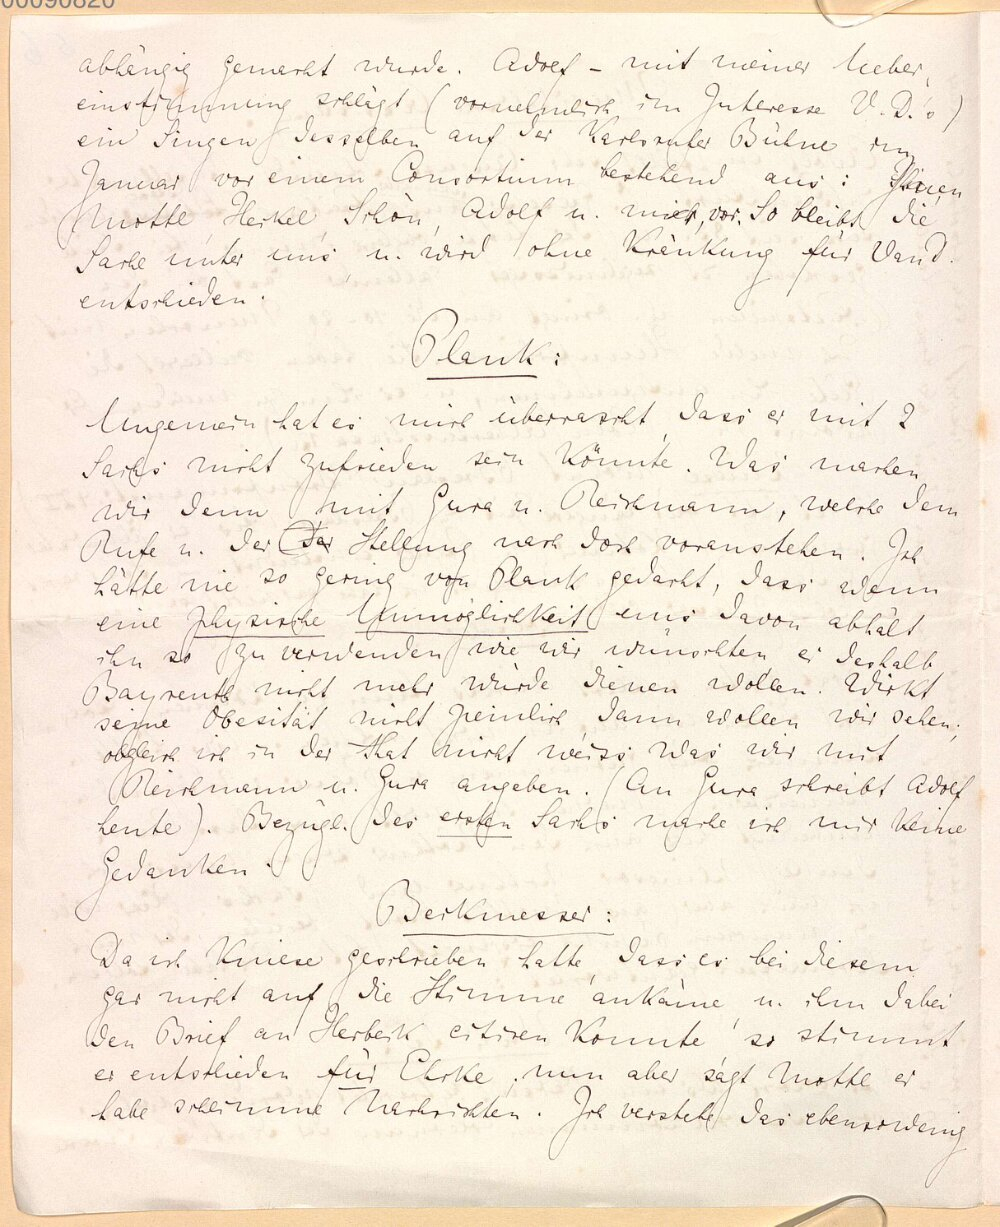 00090820
abhängig gemacht wurde. Adolf – mit meiner Ueber,
einstimmung schlägt (vornehmlich im Interesse V. D.'s)
ein Singen desselben auf der Karlsruher Bühne im
Januar vor einem Consortium bestehend aus: Ihnen
Mottl, Herkel, Schön, Adolf u. mich, vor. So bleibt die
Sache unter uns u. wird ohne Kränkung für Vand.
entschieden.
Plank:
Ungemein hat es mich überrascht, dass er mit 2
Sachs nicht zufrieden sein könnte. Was machen
wir denn mit Gura u. Reichmann, welche dem
Rufe u. der Stellung nach doch voranstehen. Ich
hätte nie so gering von Plank gedacht, dass wenn
eine physische Unmöglichkeit uns davon abhält
ihn so zu verwenden wie wir wünschten, er deshalb
Bayreuth nicht mehr würde dienen wollen. Wirkt
seine Obesität nicht peinlich dann wollen wir sehen,
obgleich ich in der That nicht weiss was wir mit
Reichmann u. Gura angeben. (An Gura schreibt Adolf
heute). Bezügl. des ersten Sachs mache ich mir keine
Gedanken.
Beckmesser:
Da ich Kniese geschrieben hatte, dass es bei diesem
gar nicht auf die Stimme ankäme u. ihm dabei
den Brief an Herbeck citiren konnte, so stimmt
er entschieden für Ehrke, nun aber sagt Mottl er
habe schlimme Nachrichten. Ich verstehe das ebensowenig